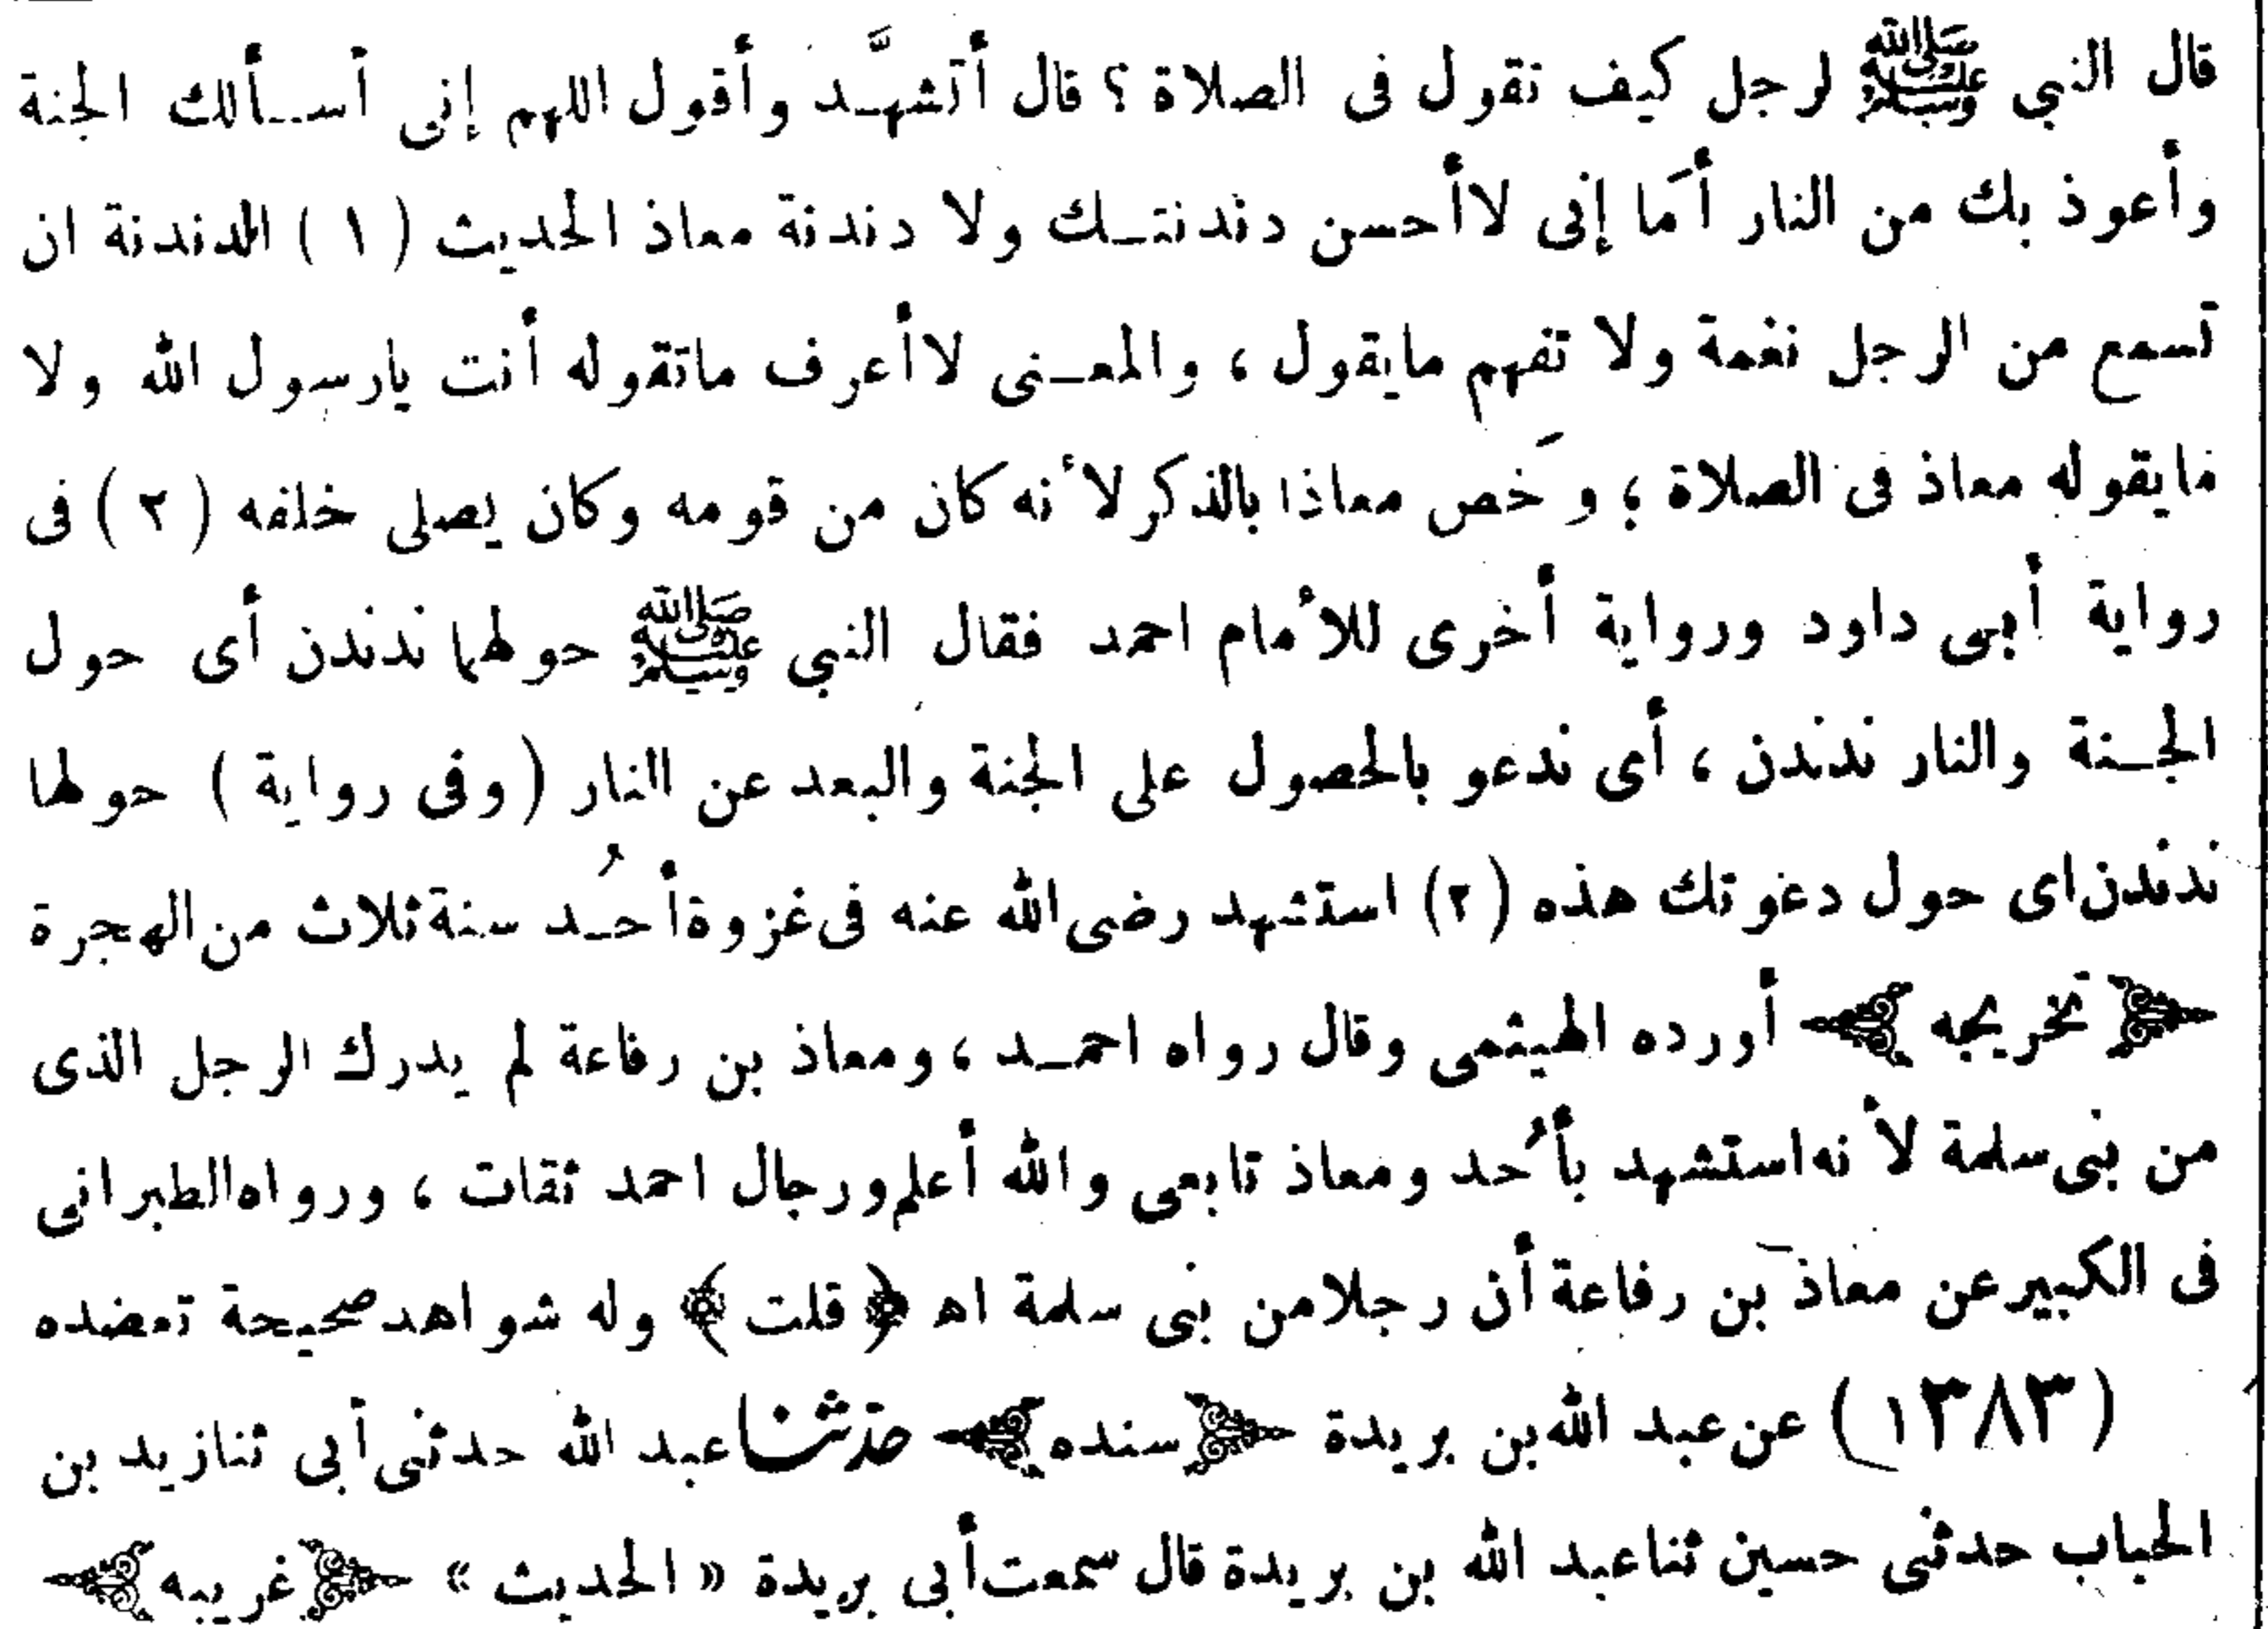 قال النبي ﷺ لرجل كيف تقول فى الصلاة ؟ قال أتشهَّـد وأقول اللهم إنى أســألك الجنة
وأعوذ بك من النار أمَا إنى لاأحسن دندنتـك ولا دندنة معاذ الحديث (١) الدندنة ان
تسمع من الرجل نغمة ولا تفهم مايقول ، والمعـنى لاأعرف ماتقوله أنت يارسول الله ولا
مايقوله معاذ فى الصلاة ؛ وخَص معاذا بالذكر لأنه كان من قومه وكان يصلى خلفه (٢) فى
رواية أبى داود ورواية أخرى للأمام احمد فقال النبي ﷺ حولهما ندندن أى حول
الجـنة والنار ندندن ، أى ندعو بالحصول على الجنة والبعد عن النار (وفى رواية) حولها
ندندن اى حول دعوتك هذه (٣) استشهد رضى الله عنه فى غزوة أحُـد سنة ثلاث من الهجرة
﴿ تخريجه ﴾ أورده الهيثمى وقال رواه احمـد ، ومعاذ بن رفاعة لم يدرك الرجل الذى
من بنى سلمة لأنه استشهد بأُحد ومعاذ تابعى والله أعلم ورجال احمد ثقات ، ورواه الطبرانى
فى الكبير عن معاذ بن رفاعة أن رجلا من بنى سلمة اه ﴿ قلت ﴾ وله شواهد صحيحة تعضده
(١٣٨٣) عن عبد الله بن بريدة ﴿ سنده ﴾ حدثنا عبد الله حدثنى أبى ثنا زيد بن
الحباب حدثنى حسين ثنا عبد الله بن بريدة قال سمعت أبى بريدة « الحديث » ﴿ غريبه ﴾